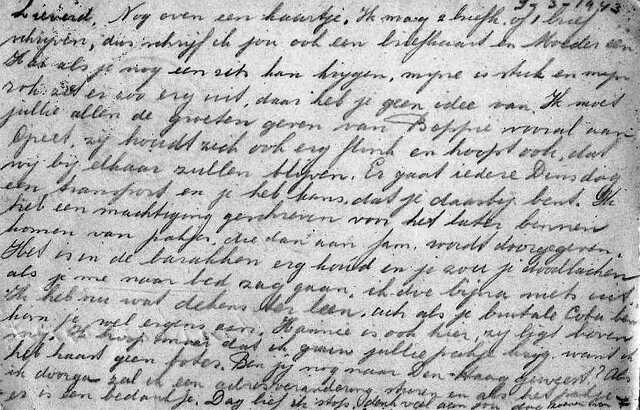 9-3-1943
Lieverd, Nog even een kaartje. Ik mag 2 briefk. of 1 brief
schrijven, dus schrijf ik jou ook een briefkaart en Moeder een.
als je nog een rits kan krijgen, mijne is stuk en mijn
rok ziet er zoo erg uit, daar heb je geen idee van. Ik moet
jullie allen de groeten geven van Beppie vooral aan
zij houdt zich ook erg flink en hoopt ook, dat
wij bij elkaar zullen blijven. Er gaat iedere Dinsdag
een transport en je heb kans, dat je daarbij bent. Ik
heb een machtiging geschreven voor het laten binnen
komen van pakjes, die dan aan fam. wordt doorgegeven.
Het is in de barakken erg koud en je zou je doodlachen
als je me naar bed zag gaan, ik doe bijna niets uit.
Ik heb nu wat dekens ter leen, ach als je brutale
kom je wel ergens aan. Hannie is ook hier, zij ligt boven
Ik hoop immer dat ik gauw jullie pakje kryg, want ik
heb haast geen Ben jij nog naar Den-Haag geweest? Als
ik doorga zal ik een adresverandering sturen en als het pakje
er is een bedankje. Dag lief ik stop, denk veel aan jou